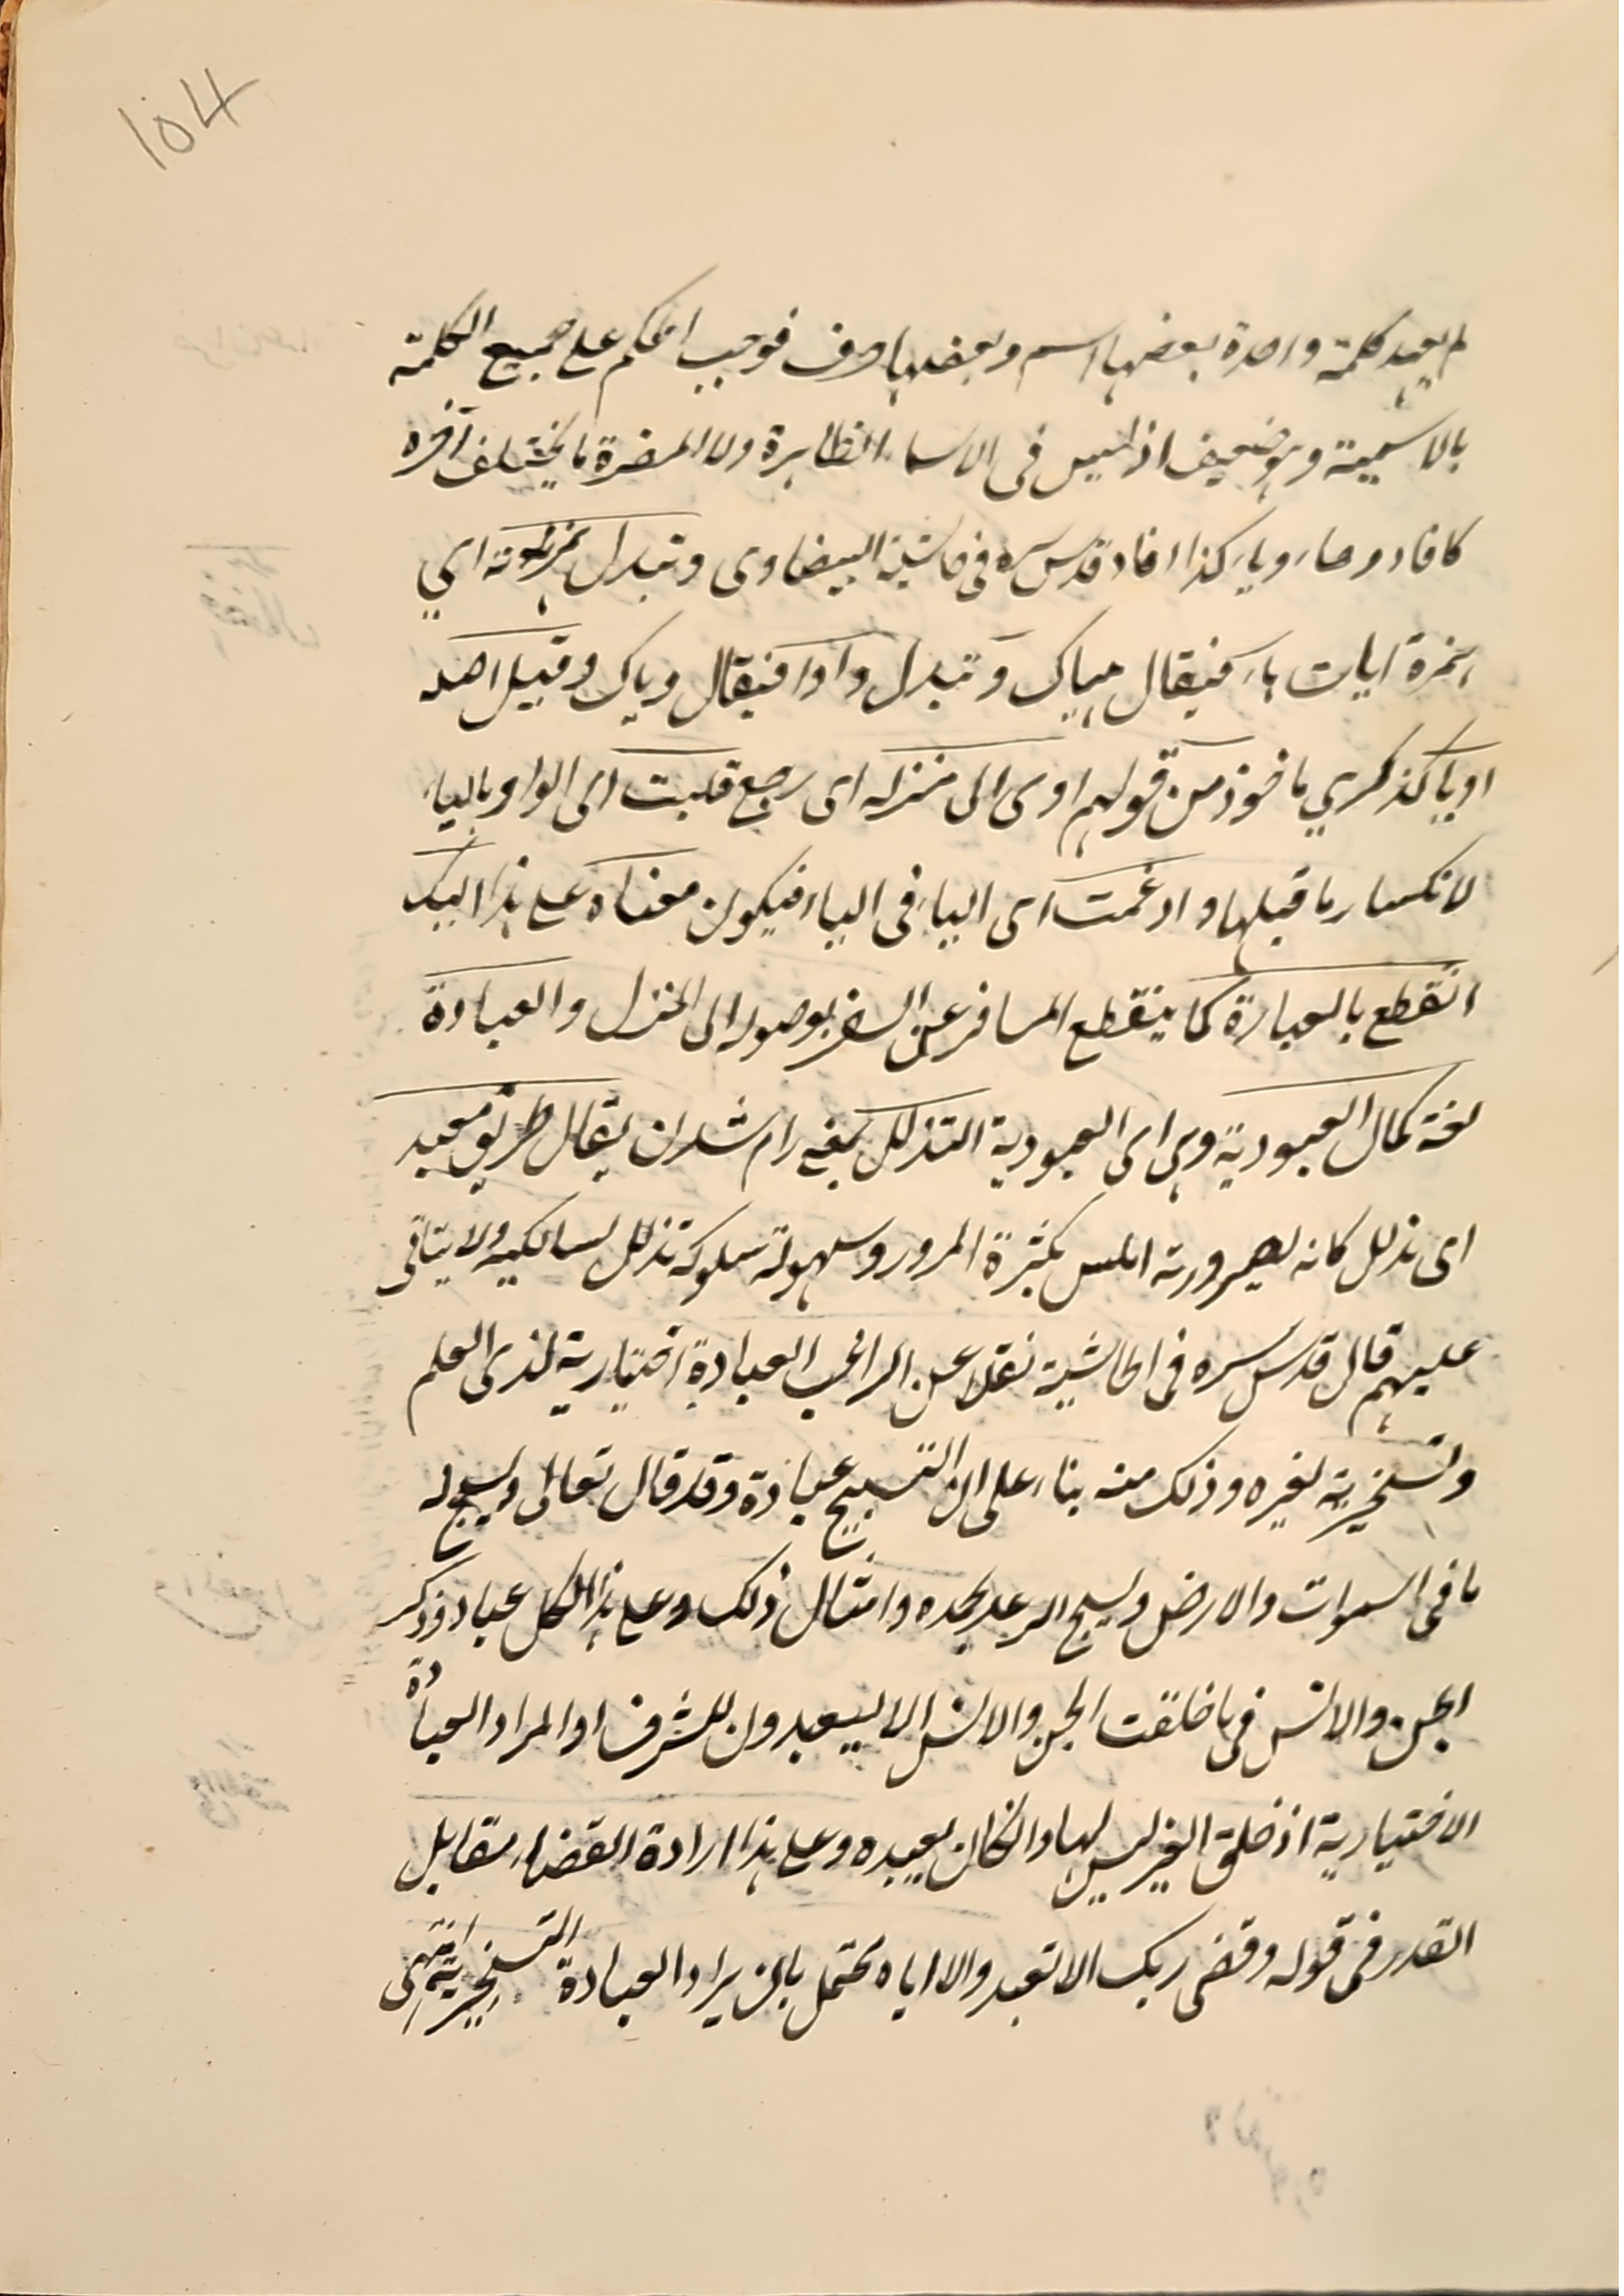 104
لم يعهد كلمة واحدة بعضها اسم وبعضها حرف فوجب الحكم على جميع الكلمة
بالاسمية وهو ضعيف اذ ليس فى الاسماء الظاهرة ولا المضمرة ما يختلف آخره
كافا وهاء وياء كذا افاد قدس سره فى حاشية البيضاوى وتبدل همزته اي
همزة اياك هاء فيقال هياك وتبدل واوا فيقال وياك وقيل اصله
اوياك كذكري ماخوذ من قولهم اوى الى منزله اى رجع قلبت اى الواو بالياء
لانكسار ما قبلها وادغمت اى الياء فى الياء فيكون معناه على هذا اليك
انقطع بالعبادة كما ينقطع المسافر عن السفر بوصوله الى المنزل والعبادة
لغة كمال العبودية وهى اى العبودية التذلل بمعنى رام شدن يقال طريق معبد
اى تذلل كانه لصيرورته املس بكثرة المرور وسهولة سلوكه تذلل لسالكيه ولا يتاقى
عليهم قال قدس سره فى الحاشية نقلا عن الراغب العبادة اختيارية لذى العلم
وتسخيرية لغيره وذلك منه بناء على ان التسبيح عبادة وقد قال تعالى ويسبح له
ما فى السموات والارض ويسبح الرعد بحمده وامثال ذلك وعلى هذا الكل عباد وذكر
الجن والانس فى ما خلقت الجن والانس الا ليعبدون للشرف او المراد العبادة
الاختيارية اذ خلق الغير ليس لها وان كان يعبده وعلى هذا ارادة القضاء مقابل
القدر فى قوله وقضى ربك الا تعبدوا الا اياه يحتمل بان يراد العبادة التسخيرية انتهى